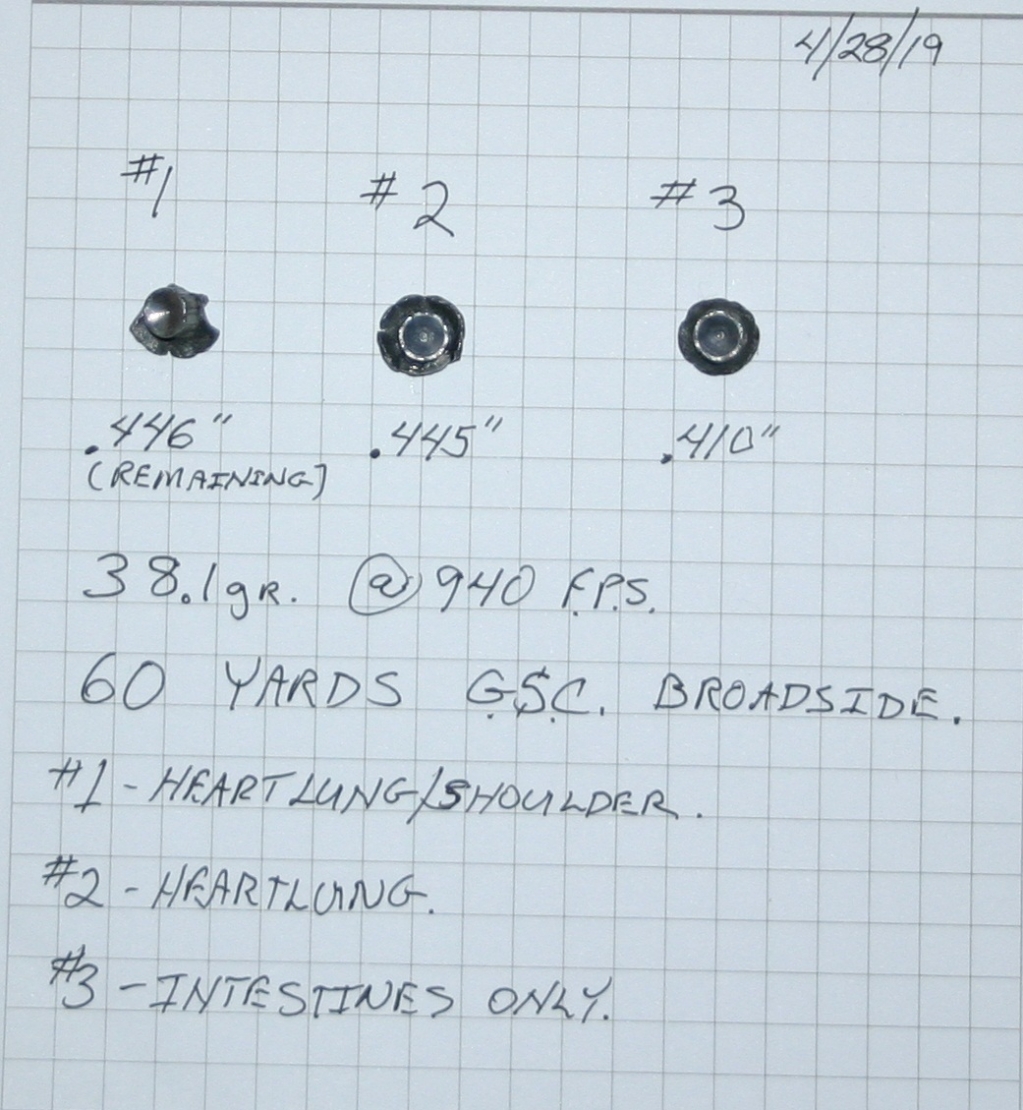 4/28/19
#1 #2 #3
.446" .445" .410"
(REMAINING)
38.1gR. @ 940 F.P.S.
60 YARDS G.S.C. BROADSIDE.
#1 - HEARTLUNG/SHOULDER.
#2 - HEARTLUNG.
#3 - INTESTINES ONLY.